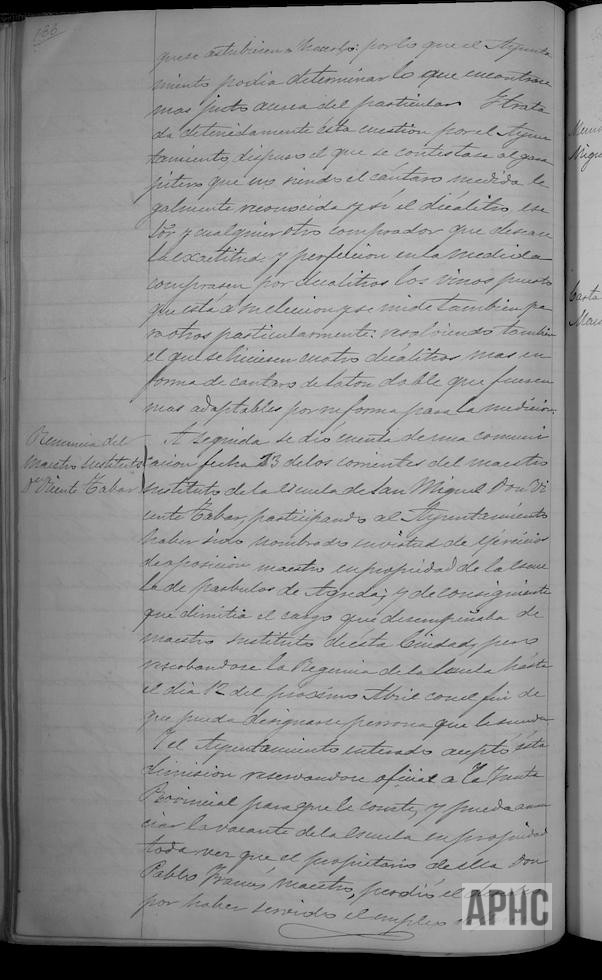 186
que se a hacerlo: por lo que el Ayunta
miento podia determinar lo que encontrase
mas justo acerca del particular. Y trata
da detenidamente ésta cuestion por el Ayun
tamiento dispuso el que se contestase al
que no siendo el cántaro medida le
galmente reconocida y si el decálitro, ese
Sor y cualquier otro comprador que desean
la exactitud y perfeccion en la medida
comprasen por decálitros los vinos puesto
que está á su eleccion y se mide tambien pa
ra otros particularmente: resolviendo tambien
el que se hiciesen cuatro decálitros mas en
forma de cántaro de laton doble que fuesen
mas adaptables por su forma para la medicion.
Renuncia del
maestro sustituto
Dn Vicente Tabar
A seguida se dió cuenta de una comuni
cacion fecha 23 de los corrientes del maestro
sustituto de la Escuela de San Miguel Don Vi
cente Tabar, participando al Ayuntamiento
haber sido nombrado en virtud de ejercicios
de oposicion maestro en propiedad de la Escue
la de parbulos de Agreda; y de consiguiente
que dimitia el cargo que desempeñaba de
maestro sustituto de esta Ciudad, pero
reservandose la Regencia de la Escuela hasta
el dia 12 del proximo Abril con el fin de
que pueda designarse persona que le suceda
Y el Ayuntamiento enterado aceptó ésta
dimision reservandose oficiar a la Junta
Provincial para que le conste, y pueda anun
ciar la vacante de la Escuela en propiedad
toda vez que el propietario de ella Don
Pablo maestro, perdió el
por haber servido el empleo
APHC